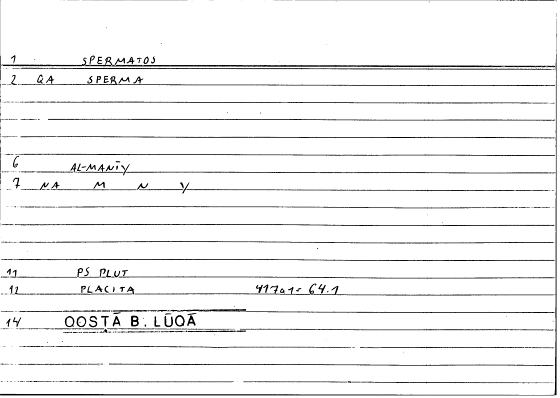 1 SPERMATOS
2 QA SPERMA
6 AL-MANĪY
7 NA M N Y
11 PS PLUT
12 PLACITA 417a1- 64.1
14 QOSṬĀ B. LŪQĀ